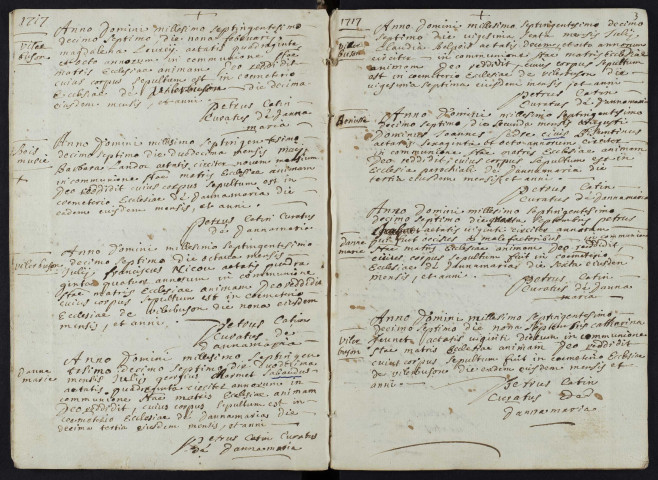 1717
Anno Domini millesimo septingentesimo
decimo septimo die nona februarij
Vilar
buson
magdalena aetatis quadraginta
et octo annorum in communione stae
matris Ecclesiae animam Deo reddidit
cuius corpus sepultum est in coemeterio
Ecclesiae de Vilerbuson die decima
eiusdem mensis, et anni
Petrus Catin
Curatus de Danna
maria
Anno Domini millesimo septringentesimo
decimo septimo die duodecima mensis may
Barbara aetatis circiter novem mensium
in communione stae matris Ecclesiae animam
Deo reddidit cuius corpus sepultum est in
coemeterio Ecclesiae de Dannamaria die
eadem eiusdem mensis, et anni
Petrus Catin Curatus
de Dannamaria
Anno Domini millesimo septingentesimo
Vilerbuson
decimo septimo die octava mensis
Julij, franciscus aetatis quadra
ginta quatuor annorum in communione
stae matris Ecclesiae animam Deo reddidit
cuius corpus sepultum est in coemeterio
Ecclesiae de Vilerbuson die nona eiusdem
mensis, et anni
Petrus Catin
Curatus de
Dannamaria
Anno Domini millesimo septingen
tesimo decimo septimo die
Danne
marie
mensis Julij
aetatis quadraginta circiter annorum in
communione stae matris Ecclesiae animam
Deo reddidit, cuius corpus sepultum est in
coemeterio Ecclesiae de Dannamaria die
decima tertia eiusdem mensis, et anni
Petrus Catin Curatus
de Dannamaria
1717
3
Anno Domini millesimo septingentesimo decimo
septimo die vigesima sexta mensis Julij
Viler
buson
Claudia aetatis decem et octo annorum
circiter in communione stae matris Ecclesiae
animam Deo reddidit, cuius corpus sepultum
est in coemeterio Ecclesiae de Vilerbuson die
vigesima septima eiusdem mensis, et anni
Petrus Catin
Curatus de Dannamaria
Anno Domini millesimo septingentesimo
decimo septimo die secunda mensis Augusti
Dominus Joannes
aetatis sexaginta et octo annorum circiter
in communione stae matris Ecclesiae animam
Deo reddidit cuius corpus sepultum est in
Ecclesia parochiali de Dannamaria die
tertia eiusdem mensis et anni
Petrus Catin
Curatus de Dannamaria
Anno Domini millesimo septingentesimo
decimo septimo die septembris petrus
aetatis viginti circiter annorum
Danne
marie
in communione
stae matris Ecclesiae animam Deo reddidit
cuius corpus sepultum fuit in coemeterio
Ecclesiae de Dannamaria die eiusdem
mensis, et anni
Petrus Catin
Curatus de Danna
maria
Anno Domini millesimo septingentesimo
decimo septimo die nona septembris catharina
Viler
buson
aetatis viginti dierum in communione
stae matris Ecclesiae animam Deo reddidit
cuius corpus sepultum fuit in coemeterio Ecclesiae
de Vilerbuson die eadem eiusdem mensis et
anni
Petrus Catin
Curatus de
Dannamaria